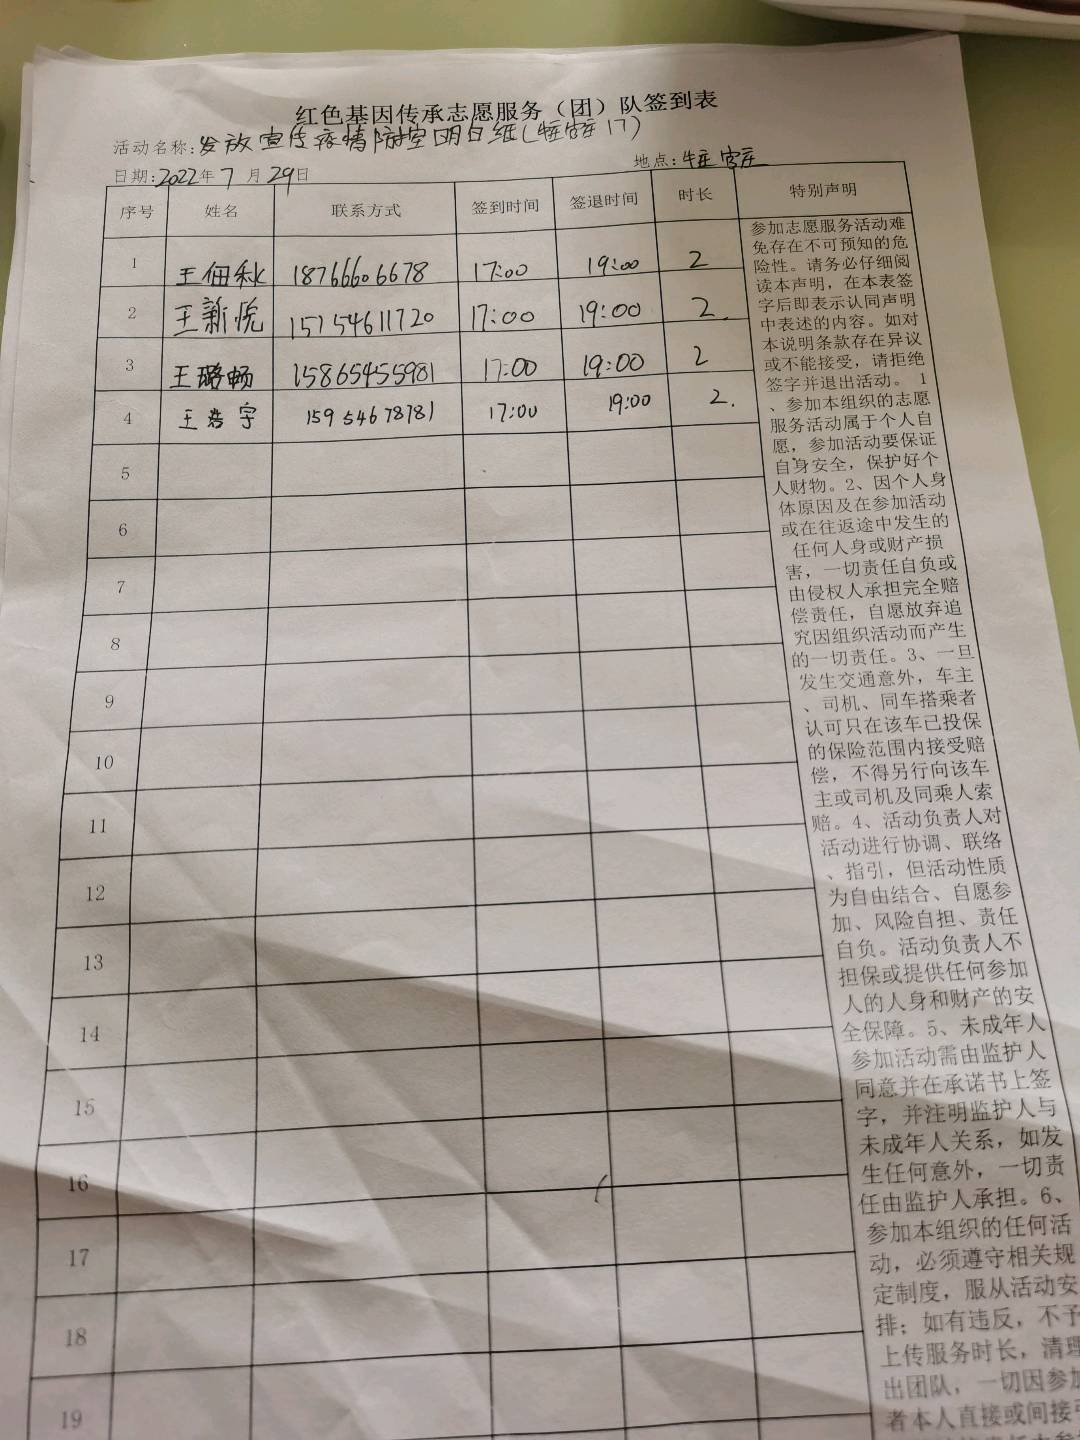 红色基因传承志愿服务（团）队签到表
活动名称:发放宣传疫情防控明白纸
日期:2022年7月29日
地点:
序号 姓名 联系方式 签到时间 签退时间 时长 特别声明
1 王佃秋 18766606678 17:00 19:00 2
2 王新悦 15754611720 17:00 19:00 2.
3 王璐畅 15865455981 17:00 19:00 2
4 王浩宇 15954678781 17:00 19:00 2.
5
6
7
8
9
10
11
12
13
14
15
16
17
18
19
参加志愿服务活动难
免存在不可预知的危
险性。请务必仔细阅
读本声明，在本表签
字后即表示认同声明
中表述的内容。如对
本说明条款存在异议
或不能接受，请拒绝
签字并退出活动。 1
、参加本组织的志愿
服务活动属于个人自
愿，参加活动要保证
自身安全，保护好个
人财物。2、因个人身
体原因及在参加活动
或在往返途中发生的
任何人身或财产损
害，一切责任自负或
由侵权人承担完全赔
偿责任，自愿放弃追
究因组织活动而产生
的一切责任。3、一旦
发生交通意外，车主
、司机、同车搭乘者
认可只在该车已投保
的保险范围内接受赔
偿，不得另行向该车
主或司机及同乘人索
赔。4、活动负责人对
活动进行协调、联络
、指引，但活动性质
为自由结合、自愿参
加、风险自担、责任
自负。活动负责人不
担保或提供任何参加
人的人身和财产的安
全保障。5、未成年人
参加活动需由监护人
同意并在承诺书上签
字，并注明监护人与
未成年人关系，如发
生任何意外，一切责
任由监护人承担。6、
参加本组织的任何活
动，必须遵守相关规
定制度，服从活动安
排；如有违反，不予
上传服务时长，清理
出团队，一切因参加
者本人直接或间接